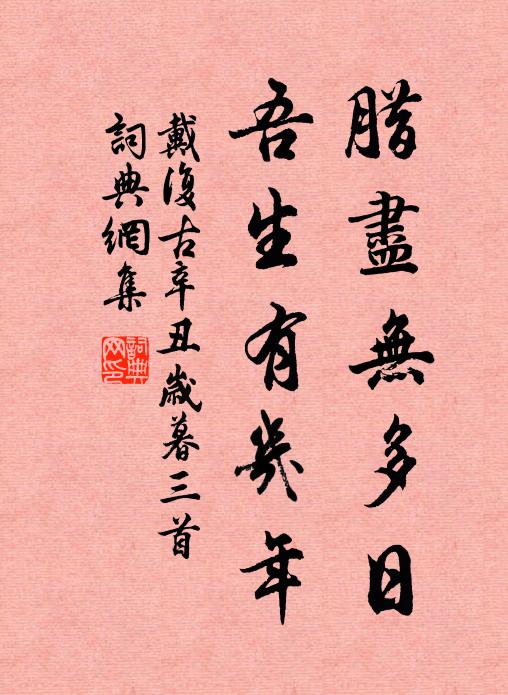 腊盡無多日
吾生有幾年
戴復古辛丑歲暮三首
詞典網集
詞典
网印